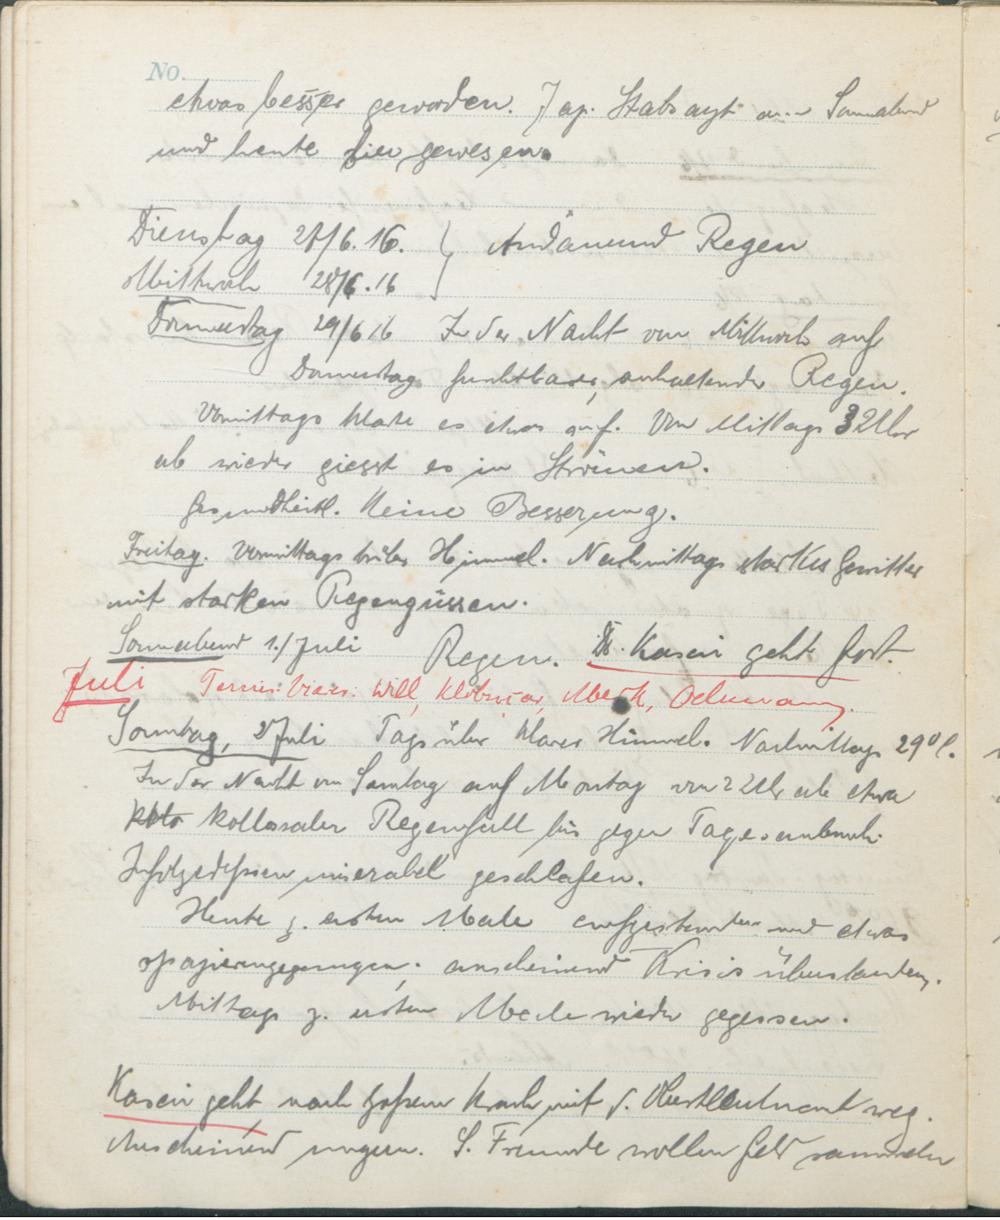 No.
etwas besser geworden. Jap. Stabsarzt am Sonnabend
und heute hier gewesen.
Dienstag 27/6.16. } Andauernd Regen
Mittwoch 28/6.16
Donnerstag 29/6 16 In der Nacht von Mittwoch auf
Donnerstag furchtbarer, anhaltender Regen.
Vormittags klarte es etwas auf. Von Mittags 2 Uhr
ab wieder giesst es in Strömen.
Gesundheitl. Keine Besserung.
Freitag. Vormittags trüber Himmel. Nachmittags starkes Gewitter
mit starken Regengüssen.
Sonnabend 1./Juli Regen. Kasein geht fort.
Juli Tennis: Will, Meck,
Sonntag, 2/Juli Tagsüber klarer Himmel. Nachmittags 29° C.
In der Nacht von Sonntag auf Montag von 2 Uhr ab etwa
kollosaler Regenfall bis gegen Tagesanbruch.
Infolgedessen miserabel geschlafen.
Heute z. ersten Male aufgestanden und etwas
spazierengegangen, anscheinend Krisis überstanden.
Mittags z. ersten Male wieder gegessen.
Kasein geht nach großem Krach mit d. Oberstleutnant weg.
Anscheinend ungern. S. Freunde wollen Geld sammeln